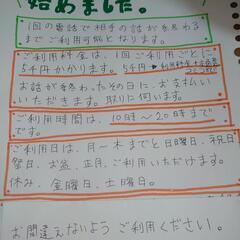 始めました。
1回の電話で相手の話が終わる
までご利用可能となります。
ご利用料金は、1回ご利用ごとに
5千円かかります。5千円
お話が終わったその日に、お支払い
いただきます。取りに伺います。
ご利用時間は、10時～20時まで
です。
ご利用日は、月～木までと日曜日、祝日
翌日、お盆、正月、ご利用いただけます。
休み、金曜日、土曜日。
お間違えないようご利用ください。